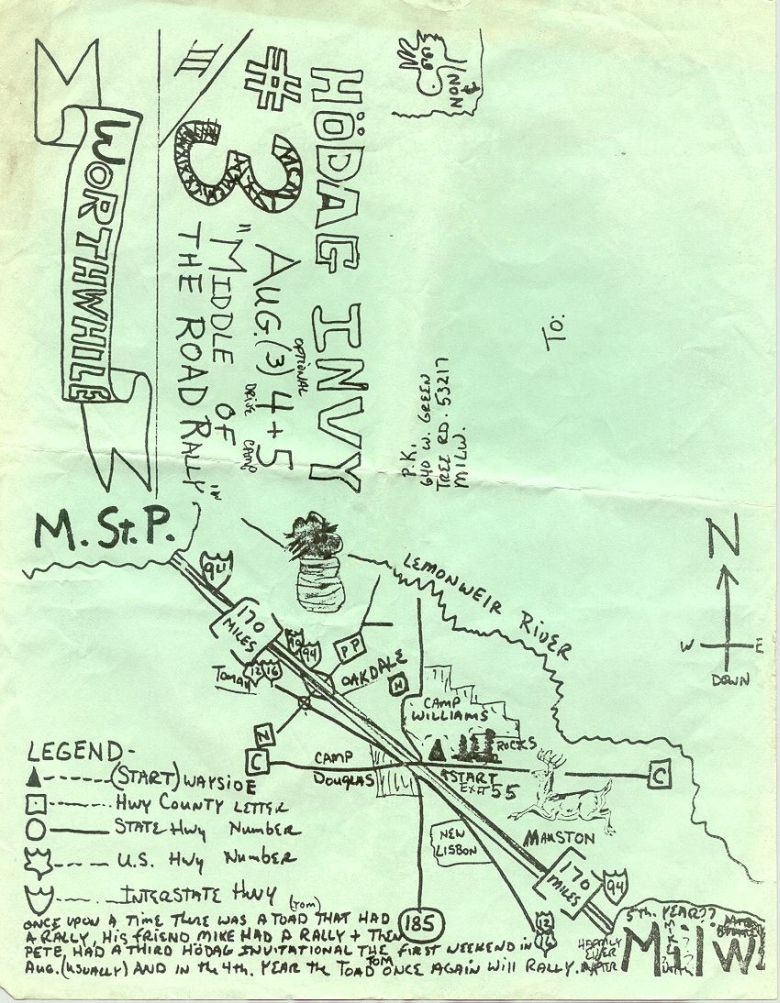 WORTHWHILE
III
HÖDAG INVY
#3
MCM
AUG. (3) 4+5
OPTIONAL
DRIVE
CAMP
"MIDDLE OF
THE ROAD RALLY"
IN
NON
P.K.
640 W. GREEN
TREE RD. 53217
MILW.
TO:
M. St. P.
94
170
MILES
LEMONWEIR RIVER
N
W E
DOWN
90
94
PP
12 16
TOMAH
OAKDALE
N
CAMP
WILLIAMS
ROCKS
C
CAMP
DOUGLAS
START
EXIT 55
C
NEW
LISBON
MAUSTON
170
MILES
94
185
12
16
LEGEND-
(START) WAYSIDE
HWY COUNTY LETTER
STATE HWY NUMBER
U.S. HWY NUMBER
INTERSTATE HWY
(TOM)
ONCE UPON A TIME THERE WAS A TOAD THAT HAD
A RALLY, HIS FRIEND MIKE HAD A RALLY + THEN
PETE, HAD A THIRD HÖDAG INVITATIONAL THE FIRST WEEKEND IN
AUG. (USUALLY) AND IN THE 4TH. YEAR THE TOAD TOM ONCE AGAIN WILL RALLY.
HAPPILY
EVER
AFTER
5TH. YEAR??
MILW